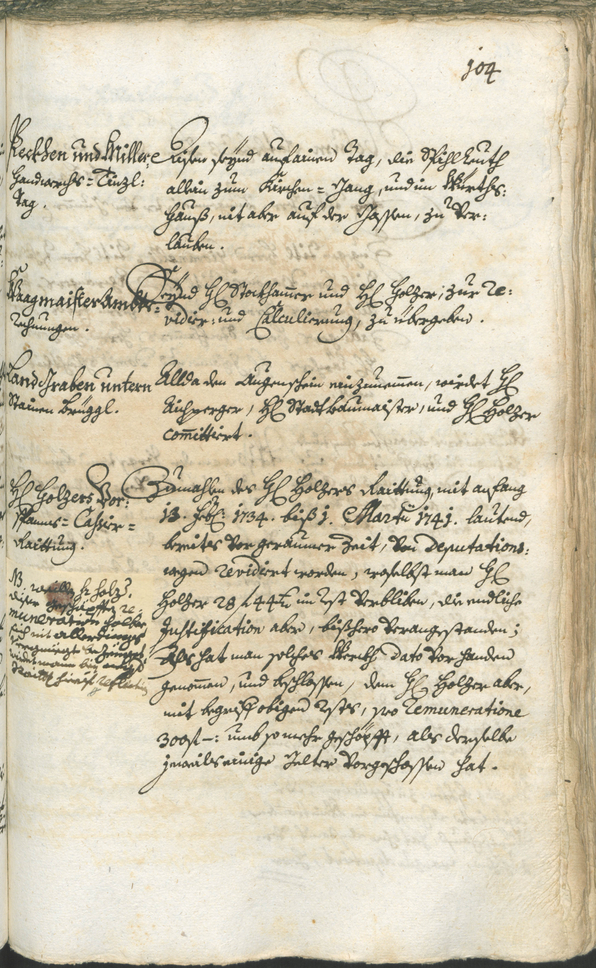 104
Pecken und Miller
Handwerchs= Einzl:
Tag.
Disen seynd auf ainen Tag, die Spihlleuth
allein zum Kirchen= Gang, und im Würths:
Hauß, nit aber auf der Gassen, zu Ver:
lauben.
Waagmaister Ambts=
Rechnungen.
Seynd H Stockhamer und H Holzer, zur Re:
vidier: und Calculierung, zu übergeben.
Land Graben untern
Stainen Brüggl.
Allda den Augenschein einzunemen, wirdet H
Aichperger, H Stadtbaumaister, und H Holzer
committiert.
H Holzers Vor:
Cassier=
Raittung.
Zumahlen des H Holzers Raittung, mit anfang
13. 1734. biß 1. Martii 1741. lautend,
bereits Vor geraumer Zeit, Von Deputations:
wegen revidiert worden, woselbst man H
Holzer 28 44 im Rest Verbliben, die endliche
Justification aber, bißhero Verangestanden;
Als hat man solches Werch dato Vorhanden
genomen, und beschlossen, dem H Holzer aber,
mit begriff obigen Rests, pro remuneratione
300 umb so mehr geschöpfft, als derselbe
jeweils einige Gelter Vorgeschossen hat.
NB.
H Holz:
diser geschöpfften re:
muneration halber
sich mit allerdings